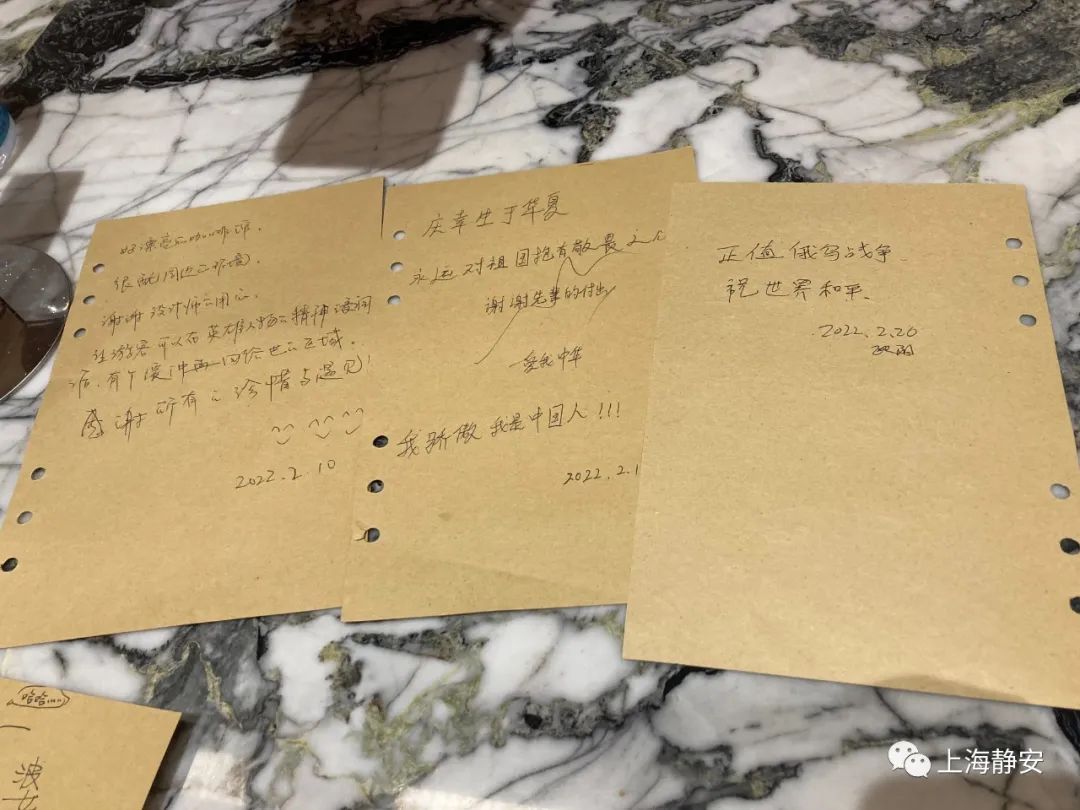 好漂亮的咖啡馆，
很融周边的环境。
谢谢设计师的用心。
让游客可以在英雄人物的精神浸润
后，有个缓冲再回俗世的区域。
感谢所有的珍惜与遇见！
2022.2.10
庆幸生于华夏
永远对祖国抱有敬畏之心
谢谢先辈的付出
爱我中华
我骄傲 我是中国人!!!
2022.2.1
正值俄乌战争.
祝世界和平.
2022.2.26
哈哈
一
波
女
上海静安